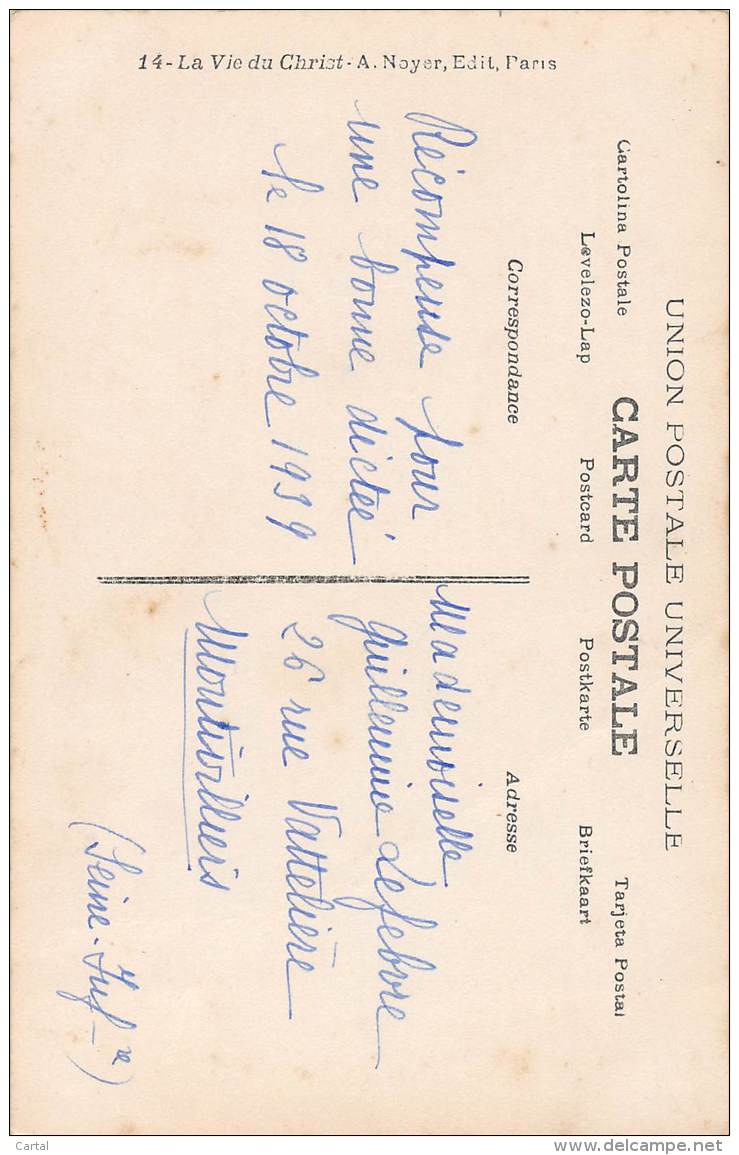 UNION POSTALE UNIVERSELLE
Cartolina Postale CARTE POSTALE Tarjeta Postal
Levelezo-Lap Postcard Postkarte Briefkaart
Correspondance
Récompense pour
une bonne dictée
le 18 octobre 1939
Adresse
Mademoiselle
Guillemine Lefebvre
26 rue Vattelière
Montivilliers
(Seine-Infre)
14-La Vie du Christ-A. Noyer, Edit, Paris
Cartal
www.delcampe.net